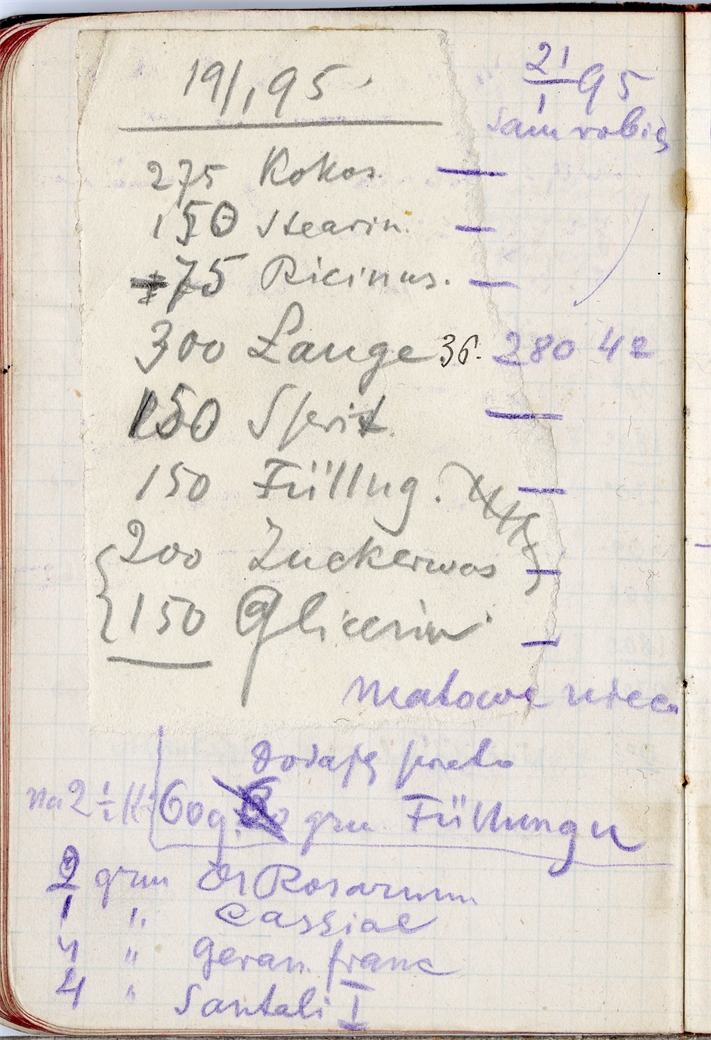 19/1 95
21/1 95
Sam robię
275 Kokos. —
150 Stearin. —
75 Ricinus. —
300 Lauge 36. 280 42
150 Sprit. —
150 Füllng. —
200 Zuckerwas —
150 Glicerin —
matowe nieco
Dodaję prato
na 2 1/2 K 60 g. gru Füllungu
2 gru Ol Rosarum
1 " Cassiae
4 " Geran. franc
4 " Santali I